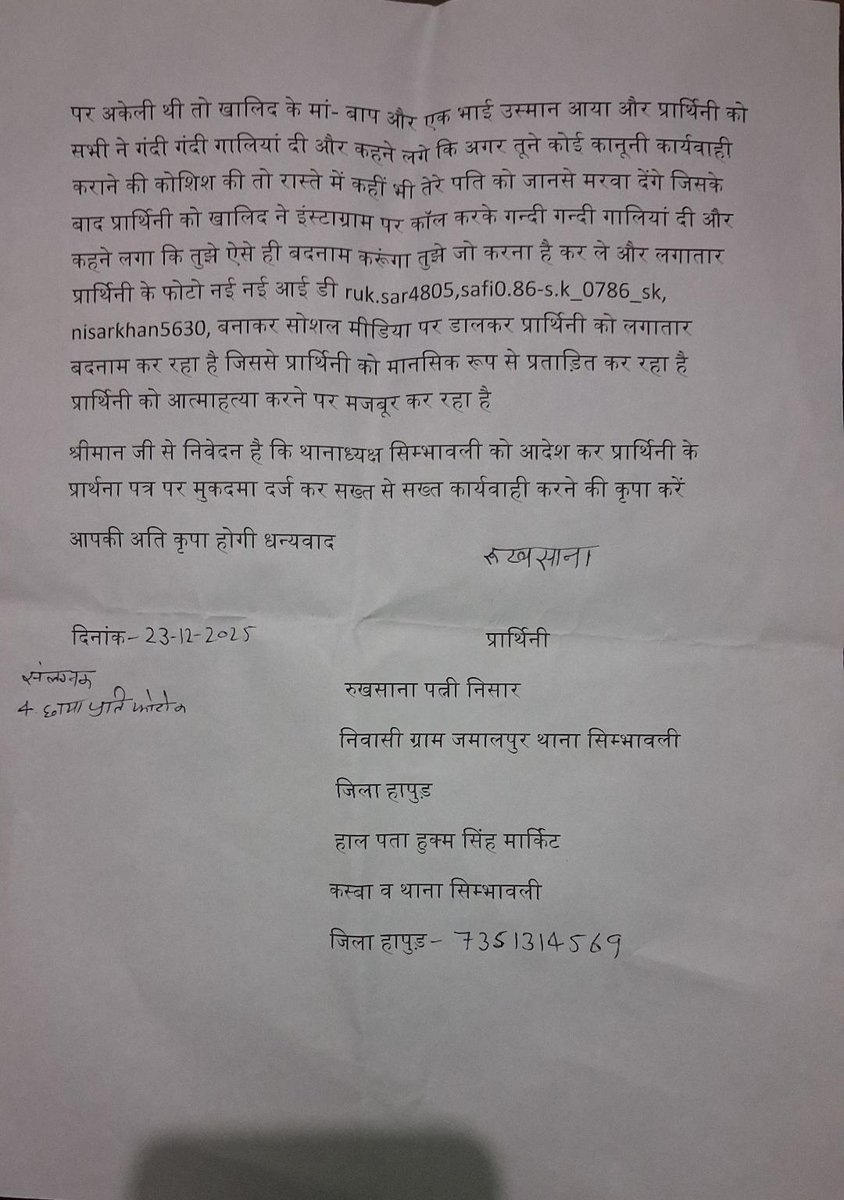 पर अकेली थी तो खालिद के मां- बाप और एक भाई उस्मान आया और प्रार्थिनी को
सभी ने गंदी गंदी गालियां दी और कहने लगे कि अगर तूने कोई कानूनी कार्यवाही
कराने की कोशिश की तो रास्ते में कहीं भी तेरे पति को जानसे मरवा देंगे जिसके
बाद प्रार्थिनी को खालिद ने इंस्टाग्राम पर कॉल करके गन्दी गन्दी गालियां दी और
कहने लगा कि तुझे ऐसे ही बदनाम करूंगा तुझे जो करना है कर ले और लगातार
प्रार्थिनी के फोटो नई नई आई डी ruk.sar4805,safi0.86-s.k_0786_sk,
nisarkhan5630, बनाकर सोशल मीडिया पर डालकर प्रार्थिनी को लगातार
बदनाम कर रहा है जिससे प्रार्थिनी को मानसिक रूप से प्रताड़ित कर रहा है
प्रार्थिनी को आत्माहत्या करने पर मजबूर कर रहा है
श्रीमान जी से निवेदन है कि थानाध्यक्ष सिम्भावली को आदेश कर प्रार्थिनी के
प्रार्थना पत्र पर मुकदमा दर्ज कर सख्त से सख्त कार्यवाही करने की कृपा करें
आपकी अति कृपा होगी धन्यवाद
रूखसाना
दिनांक- 23-12-2025
प्रार्थिनी
संलग्नक
4. छाया प्रति फोटोज
रुखसाना पत्नी निसार
निवासी ग्राम जमालपुर थाना सिम्भावली
जिला हापुड़
हाल पता हुक्म सिंह मार्किट
कस्बा व थाना सिम्भावली
जिला हापुड़- 7351314569